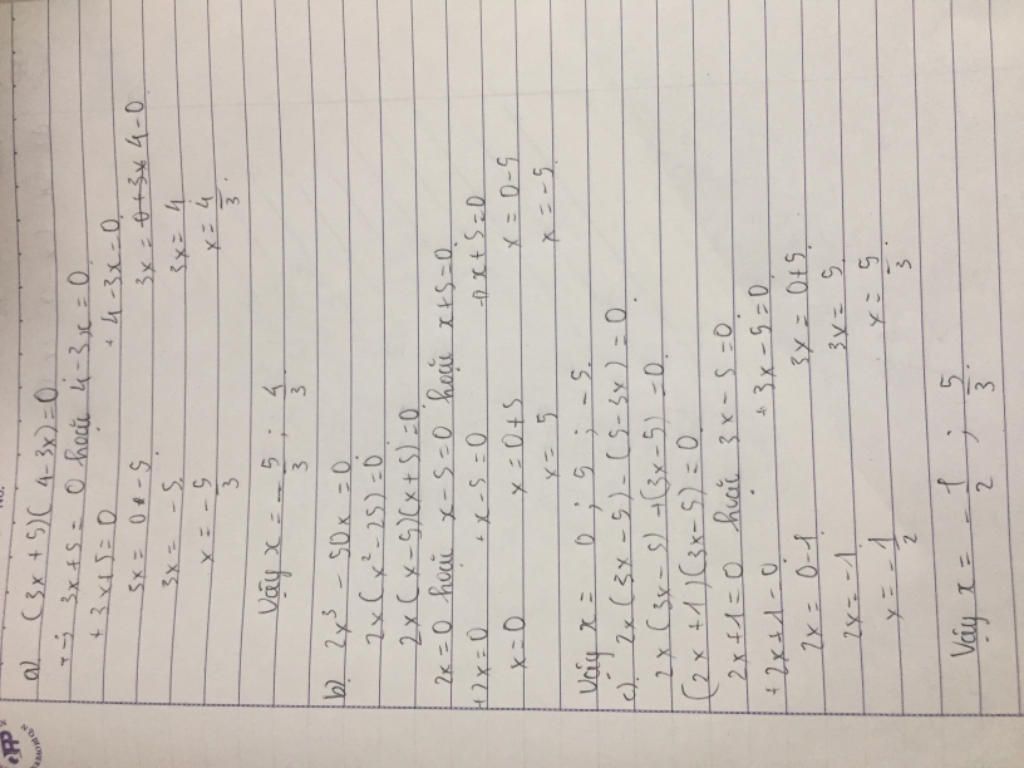 a) (3x + 5)(4-3x)=0
3x+5 = 0 hoặc 4-3x = 0
+ 3x+5=0 + 4-3x=0
3x = 0-5 3x = 4-0
3x = -5 3x = 4
x = -5/3 x = 4/3
Vậy x = -5/3 ; 4/3
b) 2x³ - 50x = 0
2x(x²-25)=0
2x(x-5)(x+5)=0
2x=0 hoặc x-5=0 hoặc x+5=0
+2x=0 + x-5=0 x+5=0
x=0 x=0+5 x = 0-5
x=5 x=-5
Vậy x = 0 ; 5 ; -5
c) 2x(3x-5)-(5-3x)=0
2x(3x-5)+(3x-5)=0
(2x+1)(3x-5)=0
2x+1=0 hoặc 3x-5=0
+2x+1=0 +3x-5=0
2x = 0-1 3x = 0+5
2x=-1 3x = 5
x = -1/2 x = 5/3
Vậy x = -1/2 ; 5/3